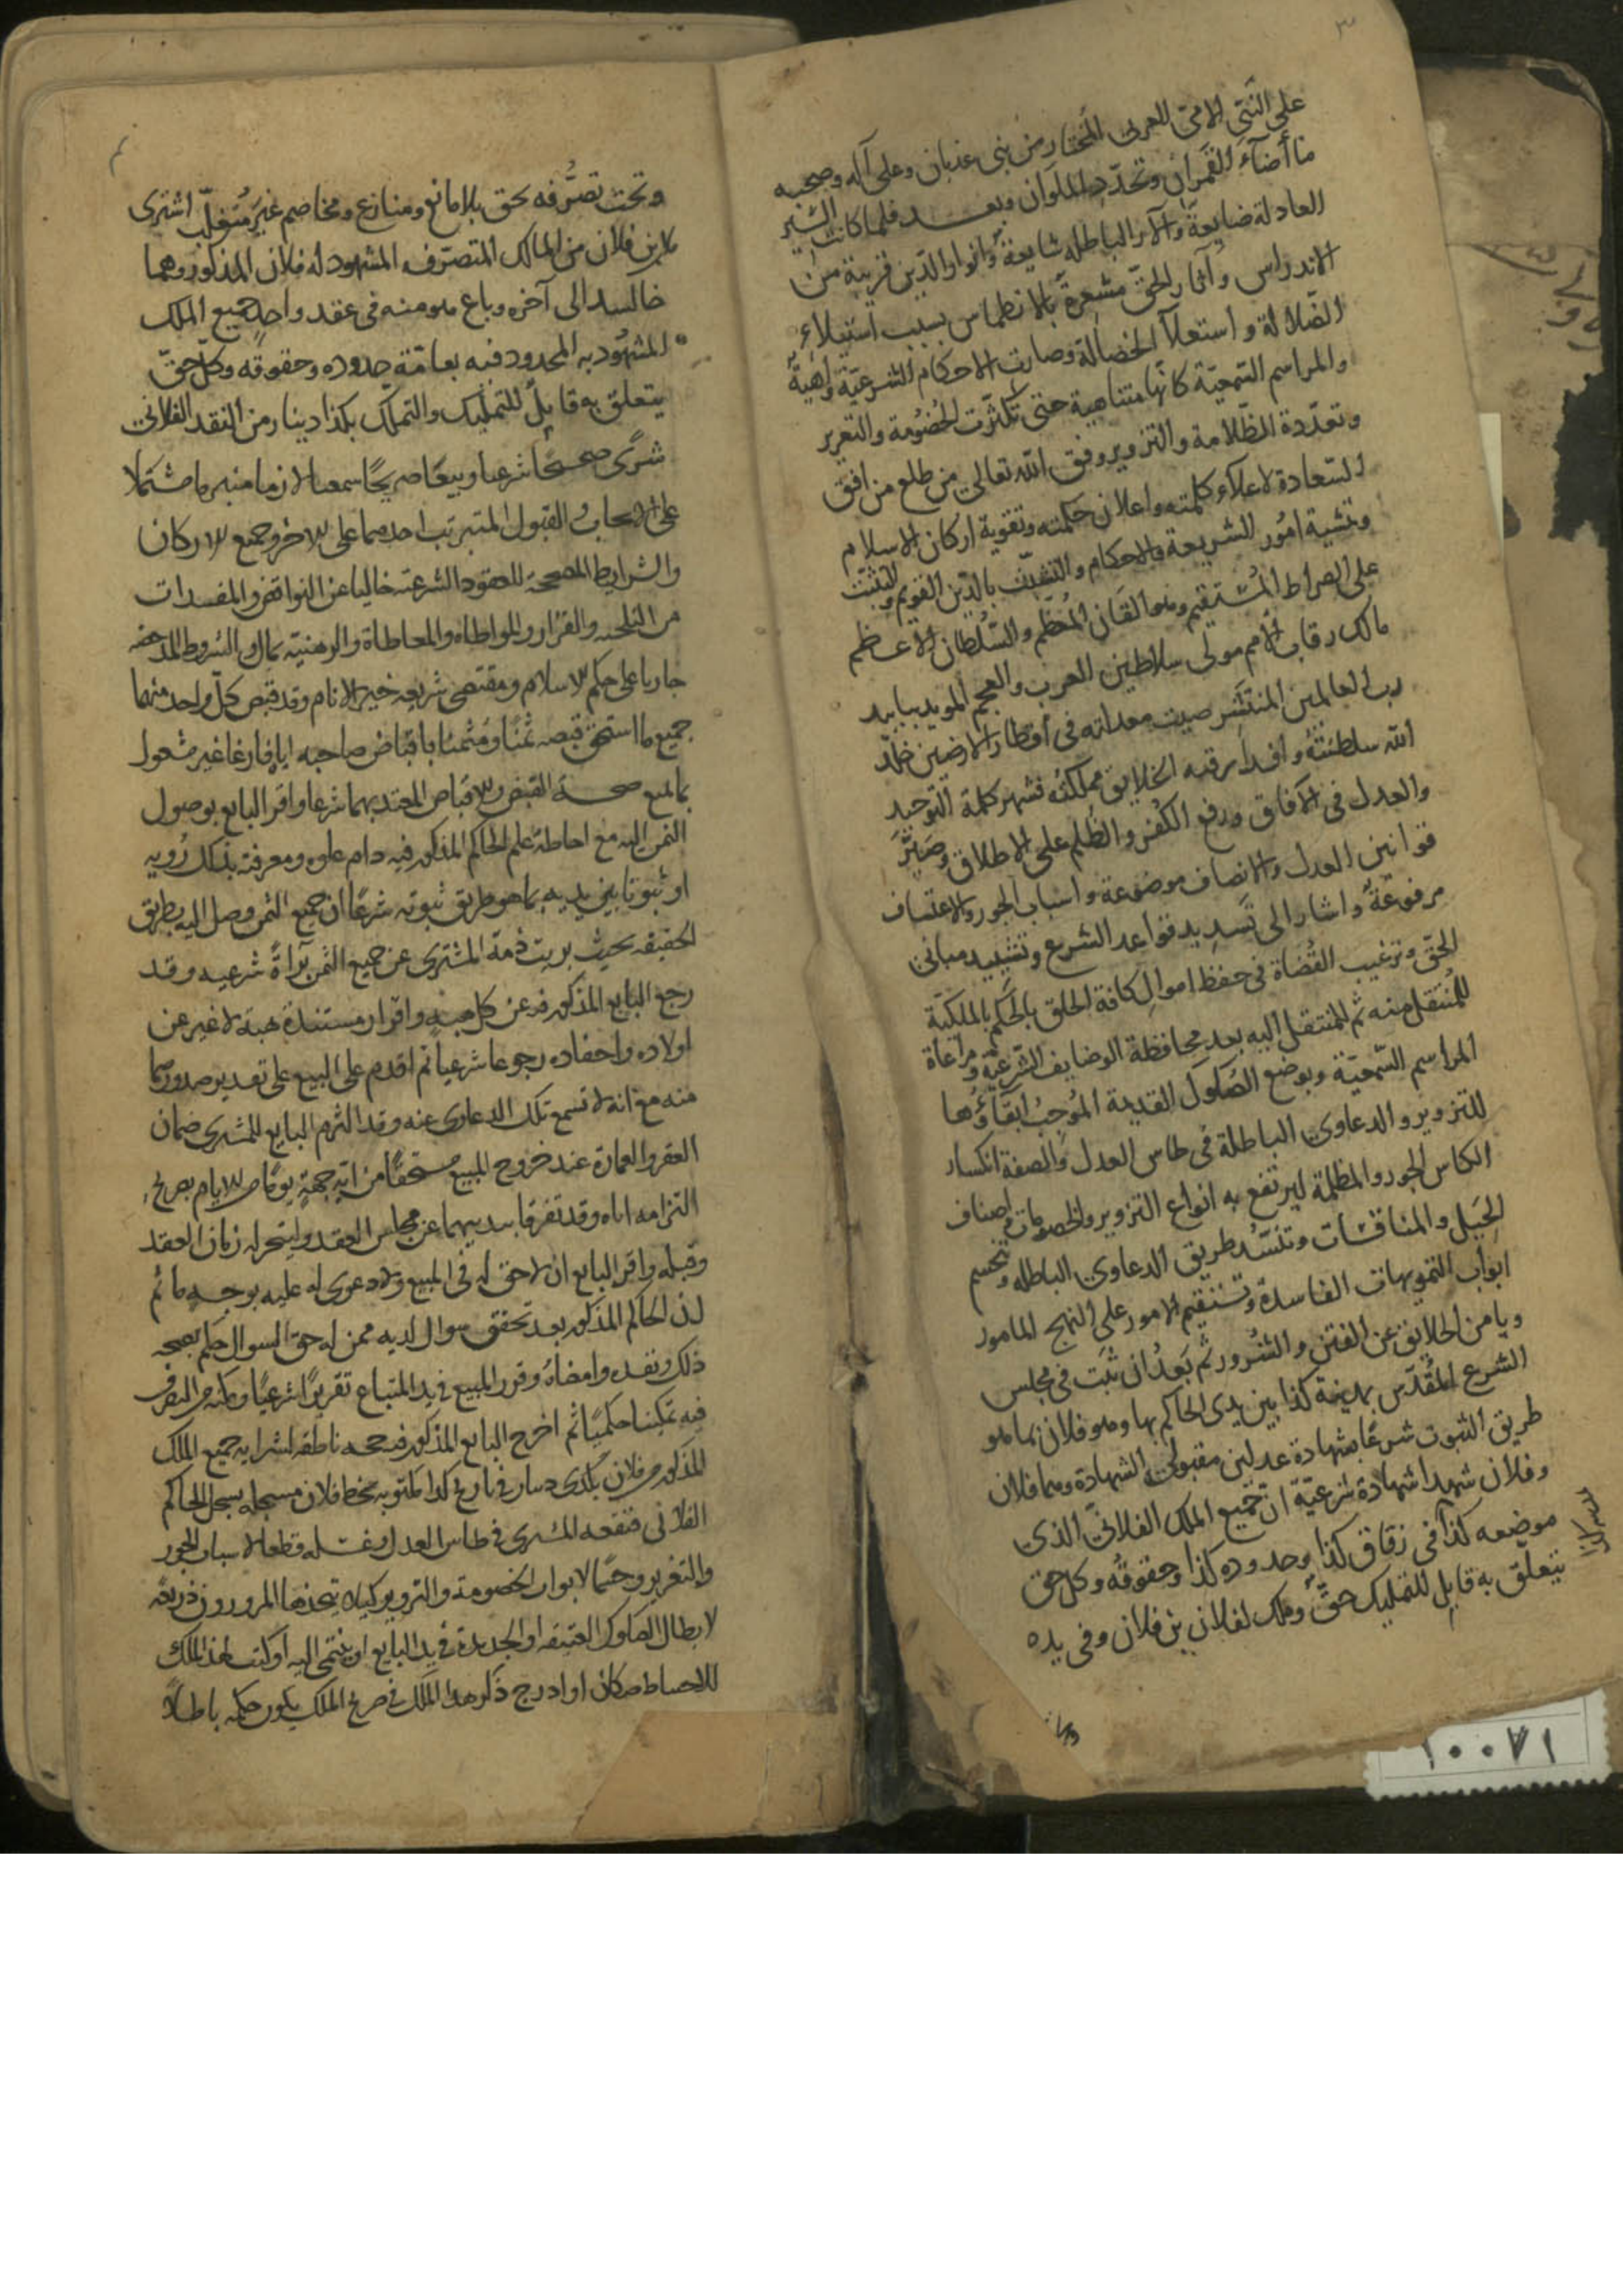 ٣
على النبى الامى العربى المختار من بنى عدنان وعلى آله وصحبه
ما أضآء القمران وتجدّد الملوان وبعـد فلما كانت السّير
العادلة ضايعةً والآرآ الباطله شايعةً وانوار الدّين قريبة من
الاندراس وآثار الحقّ مشعرةً بالانطماس بسبب استيلاء
الضّلالة و استعلآ الجهالة وصارت الاحكام الشرعيّة واهيةً
والمراسم السّمعيّة كانّها متناهية حتى تكثّرت الخُصُومة والتغرير
وتعدّدة الظّلامة والتزوير وفق الله تعالى من طلع من افق
السّعادة لاعلآء كلمته واعلان حكمته وتقوية اركان الاسلام
وتمشية امُور الشريعة والاحكام والتشبّث بالدّين القويم والتثبّت
على الصراط المُستقيم وهو القان المُعظّم والسُّلطان الاعظم
مالك رقاب الأمم مولى سلاطين العرب والعجم المويد بتاييد
رب العالمين المنتشر صيت معدلته فى أقطار الارضين خلّد
الله سلطنتهُ و رقبه الخلايق مملكتُه فشهر كلمة التّوحيد
والعدل فى الآفاق ورفع الكُفر والظُلم على الاطلاق وصَيّرَ
قوانين العدل والانصاف موضوعة واسباب الجور والاعتساف
مرفوعةً واشار الى تسديد قواعد الشرع وتشييد مبانى
الحقّ وترغيب القُضاة فى حفظ اموال كافة الخلق بالحُكم بالملكيّة
للمُنتقل منه ثم للمنتقل اليه بعد محافظة الوضايف الشّرعيّة ومراعاة
المراسم السّمعيّة وبوضع الصُكوك القديمة المُوجبُ ابقآؤها
للتزوير والدعاوى الباطلة فى طاس العدل والصفة انكسار
الكاس الجور والمظلمة ليرتفع به انواع التزوير والخصومات واصناف
الحِيَل والمناقشات وتنسّد طريق الدعاوى الباطله وتنحسم
ابواب التمويهات الفاسدة وتستقيم الامور على النهج المامور
ويامن الخلايق عن الفتن والشُرور ثم بَعدُ ان ثبت فى مجلس
الشرع المُقدّس بمدينة كذا بين يدى الحاكم بها وهو فلان بما هو
طريق الثبوت شرعًا بشهادة عدلين مقبولى الشهادة وهما فلان
وفلان شهدا شهادة شرعيّة ان جميع الملك الفلانىّ الذى
موضعه كذا فى زقاق كذا وحدوده كذا وحقوقُه وكل حق
يتعلّق به قابل للتمليك حقٌّ وملك لفلان بن فلان وفى يده
وتحت تصرُّفه بحق بلا مانع ومنازع ومخاصم غير مُتغلّب اشترى
فلان بن فلان من المالك المتصرّف المشهود له فلان المذكور وهما
الى آخره وباع هو منه فى عقد واحد جميع الملك
المشهُود به المحدود فيه بعامّة حدوده وحقوقه وكلّ حقّ
يتعلق به قابلٌ للتمليك والتملّك بكذا دينار من النقد الفلانى
شرًى صحيحًا شرعيا وبيعًا صريحًا سمعيا لازما مبرما مشتملا
على الايجاب والقبول المترتب احدهما على الاخر وجميع الاركان
والشرايط المصححة للعقود الشرعية خاليا عن النواقض والمفسدات
من التلجئه والفرار والمواطاه والمعاطاة والرهنيّة بمال والشروط المدحضه
جاريا على حكم الاسلام ومقتضى شريعه خير الانام وقد قبض كلّ واحد منهما
جميع ما استحق قبضه ثمنًا ومثمنًا باقباض صاحبه اياه فارغا غير مشغول
بما يمنع صحـة القبض والاقباض المعتد بهما شرعا واقر البايع بوصول
الثمن اليه مع احاطة علم الحاكم المذكور فيه دام علوه ومعرفته بذلك رُويه
او ثبوتا بين يديه بما هو طريق ثبوته شرعًا ان جميع الثمن وصل اليه بطريق
الحقيقه بحيث بريت ذمة المشترى عن جميع الثمن برآءةً شرعيه وقد
رجع البايع المذكور فيه عن كل هبه واقرار مستندة هبة لا غير عن
اولاده واحفاده رجوعا شرعياً ثم اقدم على البيع على تقدير صدورهما
منه مع انه لا تسمع تلك الدعاوى عنه وقد التزم البايع للمشترى ضمان
العقر والعمارة عند خروج المبيع مستحقًا من ايّه جهةٍ يومًا من الايام بصريح
التزامه اياه وقد تفرقا ببدنيهما عن مجلس العقد
وقبله واقر البايع ان لا حق له فى المبيع ولا دعوى له عليه بوجـه ما ثم
ان الحاكم المذكور بعد تحقق سوال لديه ممن له حق السوال حكم بصحه
ذلك ونفذه وامضاهُ وقرر المبيع فى يد المبتاع تقريرًا شرعيًا ومكنه من التصرف
فيه تمكينا حكميًا ثم اخرج البايع المذكور فيه حجه ناطقه لشرايه جميع الملك
المذكور من فلان بكذى دينار فى تاريخ كذا مكتوبه بخط فلان مسجله بسجل الحاكم
الفلانى فنقعه المشترى فى طاس العدل وغسله قطعا لاسباب الجور
والتغرير وحسمًا لابواب الخصومة والتزوير كيلا يتخذها المزورون ذريعه
لابطال الصكوك العتيقه او الجديدة فى يد البايع او ينتمى اليه او كتب لهذا الملك
للاحتياط صكان او ادرج ذكر هذا الملك فى صريح الملك يكون حكمه باطلا
١٠٠٧١